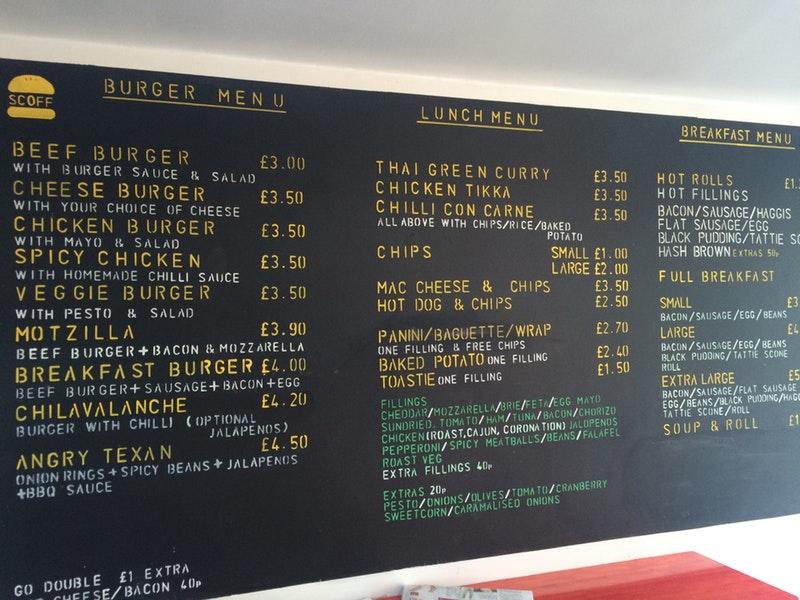 SCOFF
BURGER MENU
BEEF BURGER £3.00
WITH BURGER SAUCE & SALAD
CHEESE BURGER £3.50
WITH YOUR CHOICE OF CHEESE
CHICKEN BURGER £3.50
WITH MAYO & SALAD
SPICY CHICKEN £3.50
WITH HOMEMADE CHILLI SAUCE
VEGGIE BURGER £3.50
WITH PESTO & SALAD
MOTZILLA £3.90
BEEF BURGER+BACON & MOZZARELLA
BREAKFAST BURGER £4.00
BEEF BURGER+SAUSAGE+BACON+EGG
CHILAVALANCHE £4.20
BURGER WITH CHILLI (OPTIONAL
JALAPENOS)
ANGRY TEXAN £4.50
ONION RINGS+SPICY BEANS+JALAPENOS
+BBQ SAUCE
GO DOUBLE £1 EXTRA
CHEESE/BACON 40p
LUNCH MENU
THAI GREEN CURRY £3.50
CHICKEN TIKKA £3.50
CHILLI CON CARNE £3.50
ALL ABOVE WITH CHIPS/RICE/BAKED
POTATO
CHIPS SMALL £1.00
LARGE £2.00
MAC CHEESE & CHIPS £3.50
HOT DOG & CHIPS £2.50
PANINI/BAGUETTE/WRAP £2.70
ONE FILLING & FREE CHIPS
BAKED POTATO ONE FILLING £2.40
TOASTIE ONE FILLING £1.50
FILLINGS
CHEDDAR/MOZZARELLA/BRIE/FETA/EGG MAYO
SUNDRIED TOMATO/HAM/TUNA/BACON/CHORIZO
CHICKEN(ROAST,CAJUN,CORONATION) JALOPENOS
PEPPERONI/SPICY MEATBALLS/BEANS/FALAFEL
ROAST VEG
EXTRA FILLINGS 40p
EXTRAS 20p
PESTO/ONIONS/OLIVES/TOMATO/CRANBERRY
SWEETCORN/CARAMALISED ONIONS
BREAKFAST MENU
HOT ROLLS £1.
HOT FILLINGS
BACON/SAUSAGE/HAGGIS
FLAT SAUSAGE/EGG
BLACK PUDDING/TATTIE
HASH BROWN EXTRAS 50p
FULL BREAKFAST
SMALL £3
BACON/SAUSAGE/EGG/BEANS
LARGE £4
BACON/SAUSAGE/EGG/BEANS
BLACK PUDDING/TATTIE SCONE
ROLL
EXTRA LARGE £5
BACON/SAUSAGE/FLAT SAUSAGE
EGG/BEANS/BLACK PUDDING/
TATTIE SCONE/ROLL
SOUP & ROLL £1